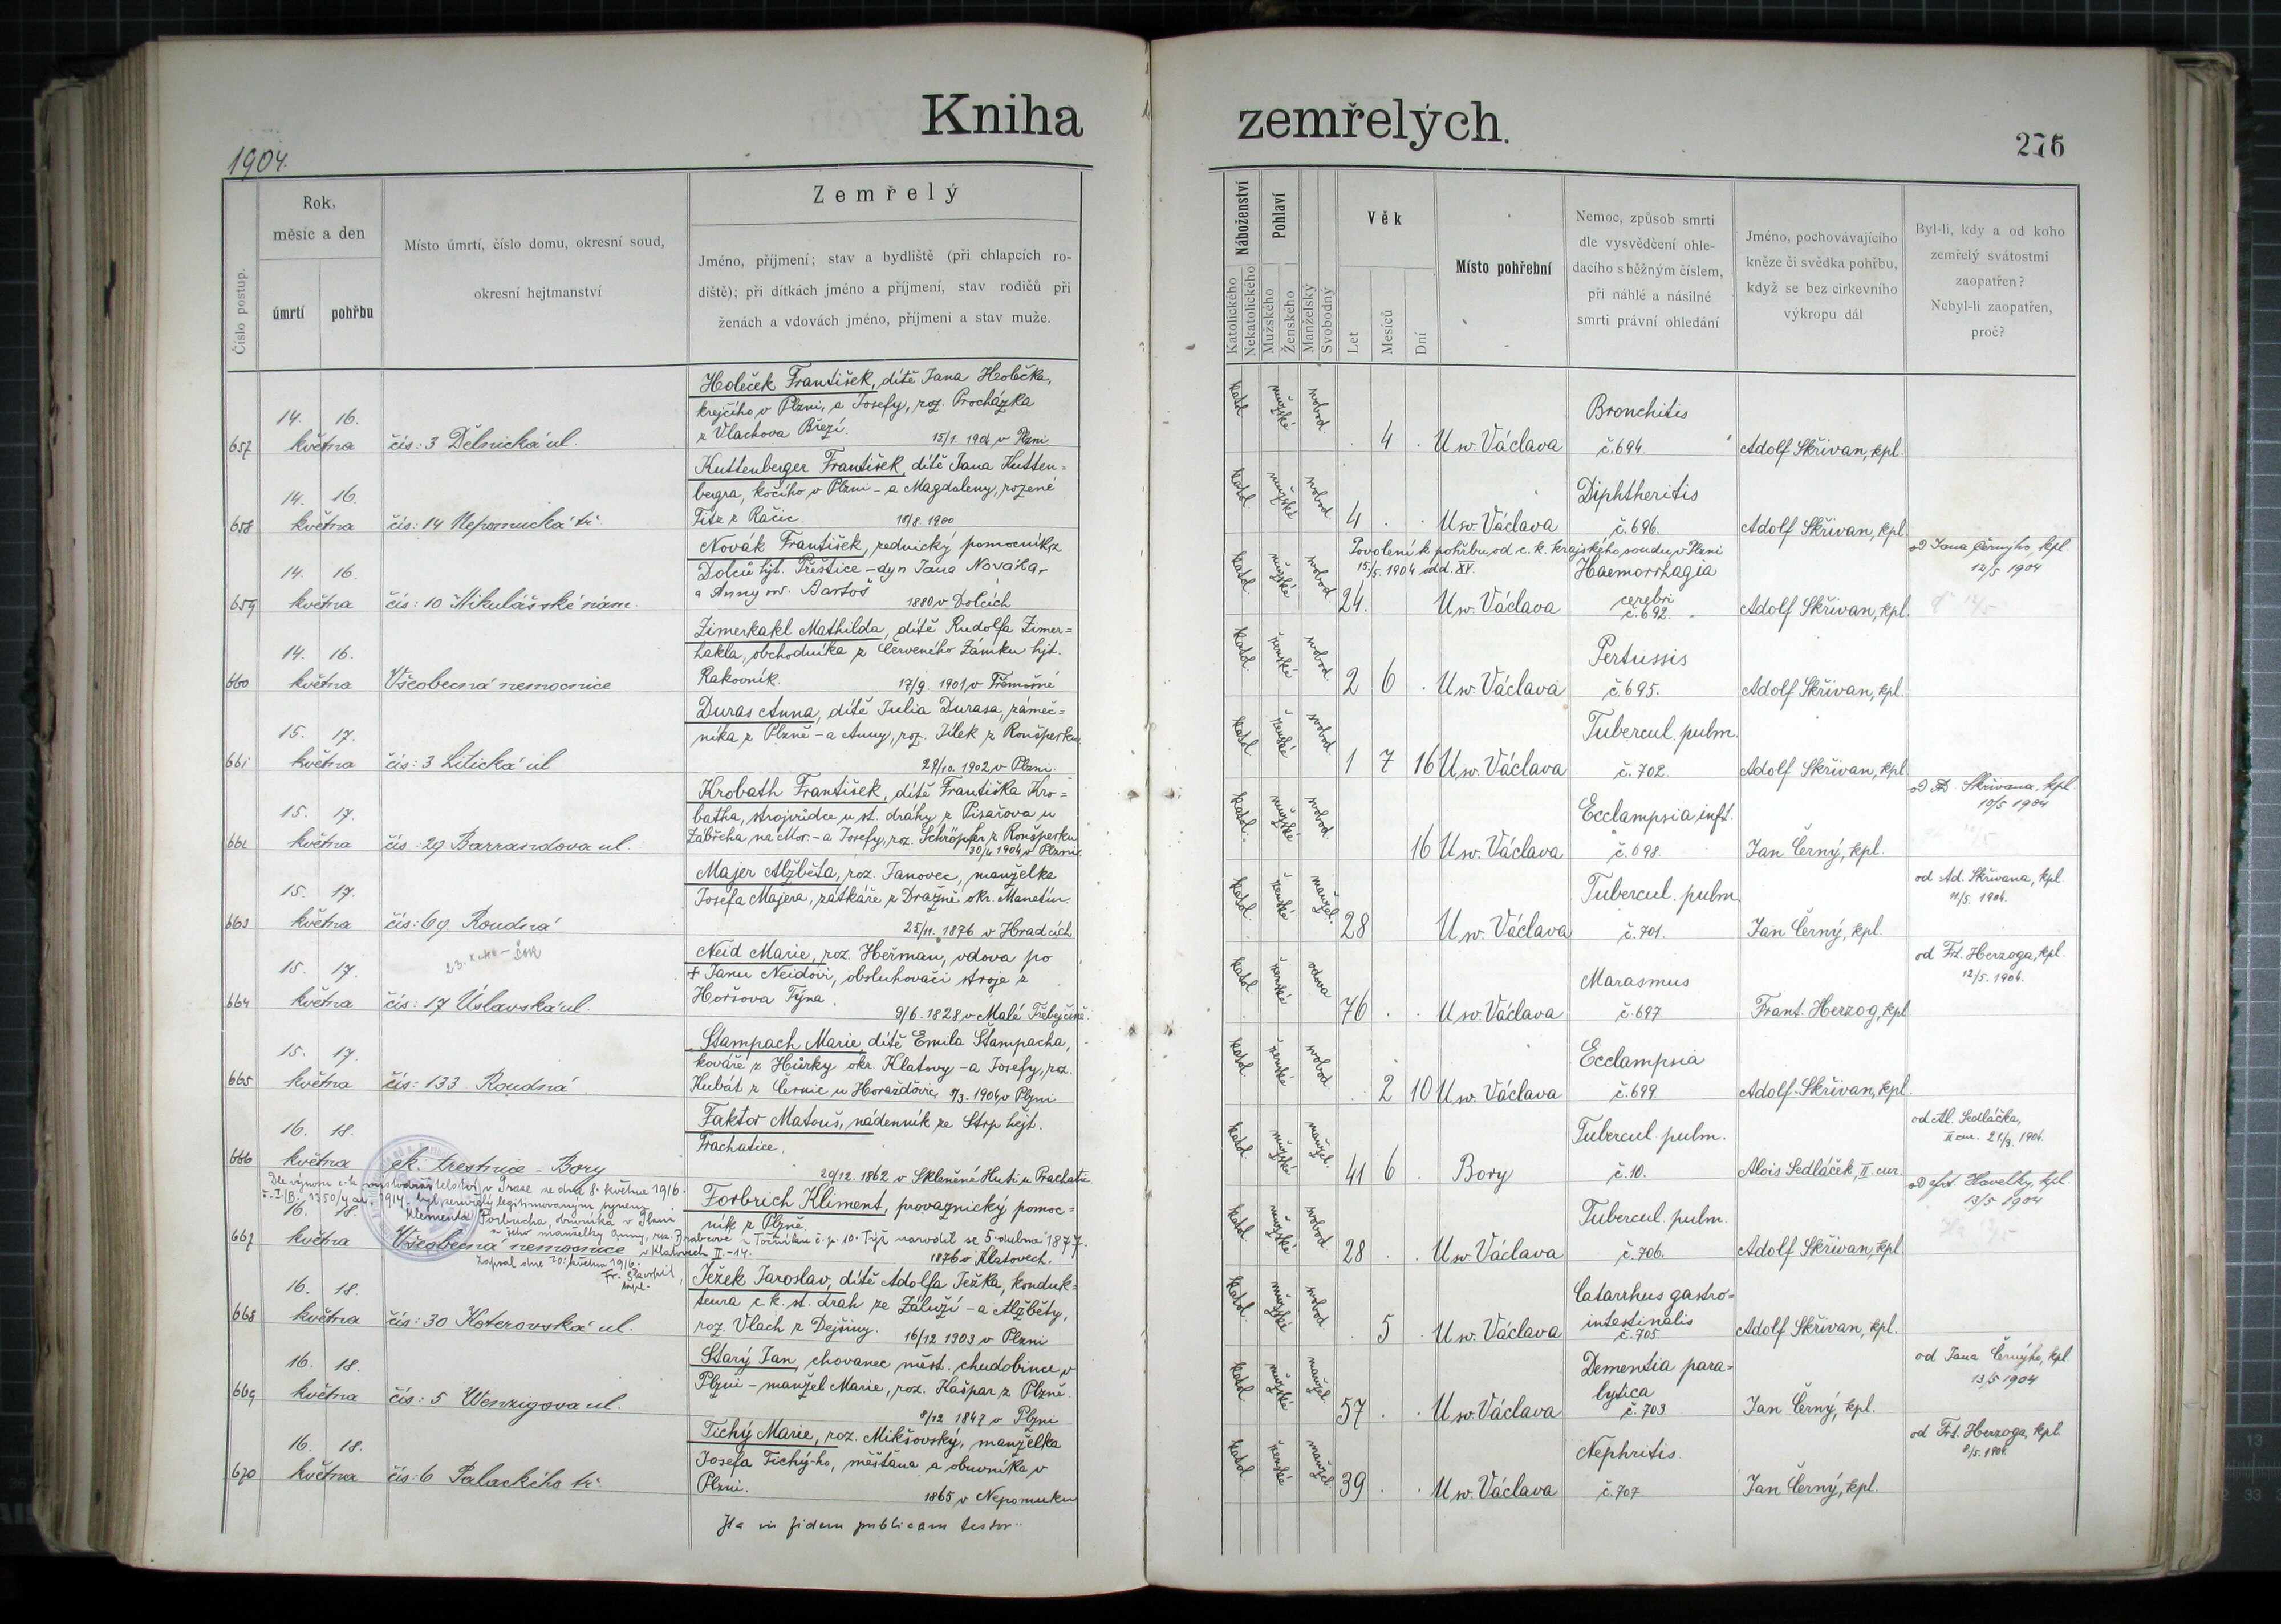 Kniha zemřelých.
1904.
276
Číslo postup.
Rok, měsíc a den
úmrtí
pohřbu
Místo úmrtí, číslo domu, okresní soud,
okresní hejtmanství
Zemřelý
Jméno, příjmení; stav a bydliště (při chlapcích ro-
diště); při dítkách jméno a příjmení, stav rodičů při
ženách a vdovách jméno, příjmení a stav muže.
Náboženství
Katolického
Nekatolického
Pohlaví
Mužského
Ženského
Manželský
Svobodný
Věk
Let
Měsíců
Dní
Místo pohřební
Nemoc, způsob smrti
dle vysvědčení ohle-
dacího s běžným číslem,
při náhlé a násilné
smrti právní ohledání
Jméno, pochovávajícího
kněze či svědka pohřbu,
když se bez církevního
výkropu dál
Byl-li, kdy a od koho
zemřelý svátostmi
zaopatřen?
Nebyl-li zaopatřen,
proč?
Holeček František, dítě Jana Holečka,
krejčího v Plzni, a Josefy, roz. Procházka
z Vlachova Březí. 15/1. 1904 v Plzni
657 14. 16. května čís: 3 Dělnická ul.
katol. mužské svobod. 4 U sv. Václava Bronchitis č. 694 Adolf Skřivan, kpl.
Kuttenberger František, dítě Jana Kutten=
bergra, kočího v Plzni - a Magdaleny, rozené
Titz z Račic. 18/8. 1900
658 14. 16. května čís: 14 Nepomucká tř.
katol. mužské svobod. 4 U sv. Václava Diphtheritis č. 696. Adolf Skřivan, kpl.
Novák František, zednický pomocník z
Dolců hjt. Přeštice - syn Jana Nováka,
a Anny roz. Bartoš 1880 v Dolcích
659 14. 16. května čís: 10 Mikulášské nám.
Povolení k pohřbu od c. k. krajského soudu v Plzni
15/5. 1904 odd. XV.
katol. mužské svobod. 24. U sv. Václava Haemorrhagia cerebri č. 692. Adolf Skřivan, kpl.
od Jana Černýho, kpl. 12/5 1904
Zimerhakl Mathilda, dítě Rudolfa Zimer=
hakla, obchodníka z Červeného Zámku hjt.
Rakovník. 17/9. 1901 v Třemošné
660 14. 16. května Všeobecná nemocnice
katol. ženské svobod. 2 6 U sv. Václava Pertussis č. 695. Adolf Skřivan, kpl.
Duras Anna, dítě Julia Durasa, zámeč=
níka z Plzně - a Anny, roz. Jílek z Ronšperku
29/10. 1902 v Plzni.
661 15. 17. května čís: 3 Litická ul
katol. ženské svobod. 1 7 16 U sv. Václava Tubercul. pulm. č. 702. Adolf Skřivan, kpl.
Krobath František, dítě Františka Kro=
batha, strojvůdce u st. dráhy z Písařova u
Zábřeha na Mor. - a Josefy, roz. Schröpfer z Ronšperku
30/4 1904 v Plzni.
662 15. 17. května čís: 29 Barrandova ul.
katol. mužské svobod. 16 U sv. Václava Ecclampsia inft. č. 698. Jan Černý, kpl.
od Ad. Skřivana, kpl. 10/5 1904
Majer Alžběta, roz. Janovec, manželka
Josefa Majera, zátkáře z Dražně okr. Manětín.
25/11. 1876 v Hradcích
663 15. 17. května čís: 69 Roudná
katol. ženské manžel. 28 U sv. Václava Tubercul. pulm. č. 701. Jan Černý, kpl.
od Ad. Skřivana, kpl. 11/5. 1904.
Neid Marie, roz. Heřman, vdova po
† Janu Neidovi, obsluhovači stroje z
Horšova Týna. 9/6. 1828 v Malé
664 15. 17. května čís: 17 Úslavská ul.
katol. ženské vdova 76 U sv. Václava Marasmus č. 697 Frant. Herzog, kpl
od Fr. Herzoga, kpl. 12/5. 1904.
Štampach Marie, dítě Emila Štampacha,
kováře z Hůrky okr. Klatovy - a Josefy, roz.
Kubát z Černic u Horažďovic, 5/3. 1904 v Plzni
665 15. 17. května čís: 133 Roudná
katol. ženské svobod. 2 10 U sv. Václava Ecclampsia č. 699. Adolf Skřivan, kpl.
Faktor Matouš, nádenník ze Strp hejt.
Prachatice.
20/12. 1862 v Skleněné Huti u Prachatic
666 16. 18. května ck. trestnice - Bory
katol. mužské manžel. 41 6 Bory Tubercul. pulm. č. 10. Alois Sedláček, II. cur.
od Al. Sedláčka, II cur. 21/3. 1904.
Dle výnosu c. k. místodržitelství v Praze ze dne 8. května 1916
1914. byl zemřelý legitimovaným synem
Klementa Forbricha, obuvníka v Plzni
a jeho manželky Anny, roz.
č. p. 10. Týž narodil se 5. dubna 1877.
v Klatovech II - 14.
Zapsal dne 20. května 1916.
kapl.
Forbrich Kliment, provaznický pomoc=
ník z Plzně.
1876 v Klatovech.
667 16. 18. května Všeobecná nemocnice
katol. mužské svobod. 28 U sv. Václava Tubercul. pulm. č. 706. Adolf Skřivan, kpl.
od Havelky, kpl. 13/5 1904
Ježek Jaroslav, dítě Adolfa Ježka, konduk=
teura c. k. st. drah ze Záluží - a Alžběty,
roz. Vlach z Dejšiny. 16/12 1903 v Plzni
668 16. 18. května čís: 30 Koterovská ul.
katol. mužské svobod. 5 U sv. Václava Catarrhus gastro= intestinalis č. 705. Adolf Skřivan, kpl.
Starý Jan, chovanec měst. chudobince v
Plzni - manžel Marie, roz. Kašpar z Plzně.
8/12 1847 v Plzni
669 16. 18. května čís: 5 Wenzigova ul.
katol. mužské manžel. 57 U sv. Václava Dementia para= lytica č. 703. Jan Černý, kpl.
od Jana Černýho, kpl. 13/5 1904
Tichý Marie, roz. Mikšovský, manželka
Josefa Tichý-ho, měšťana a obuvníka v
Plzni. 1865 v Nepomuku
670 16. 18. května čís: 6 Palackého tř.
katol. ženské manžel. 39 U sv. Václava Nephritis č. 707 Jan Černý, kpl.
od Frt. Herzoga, kpl. 8/5. 1904.
Ita in fidem publicam testor